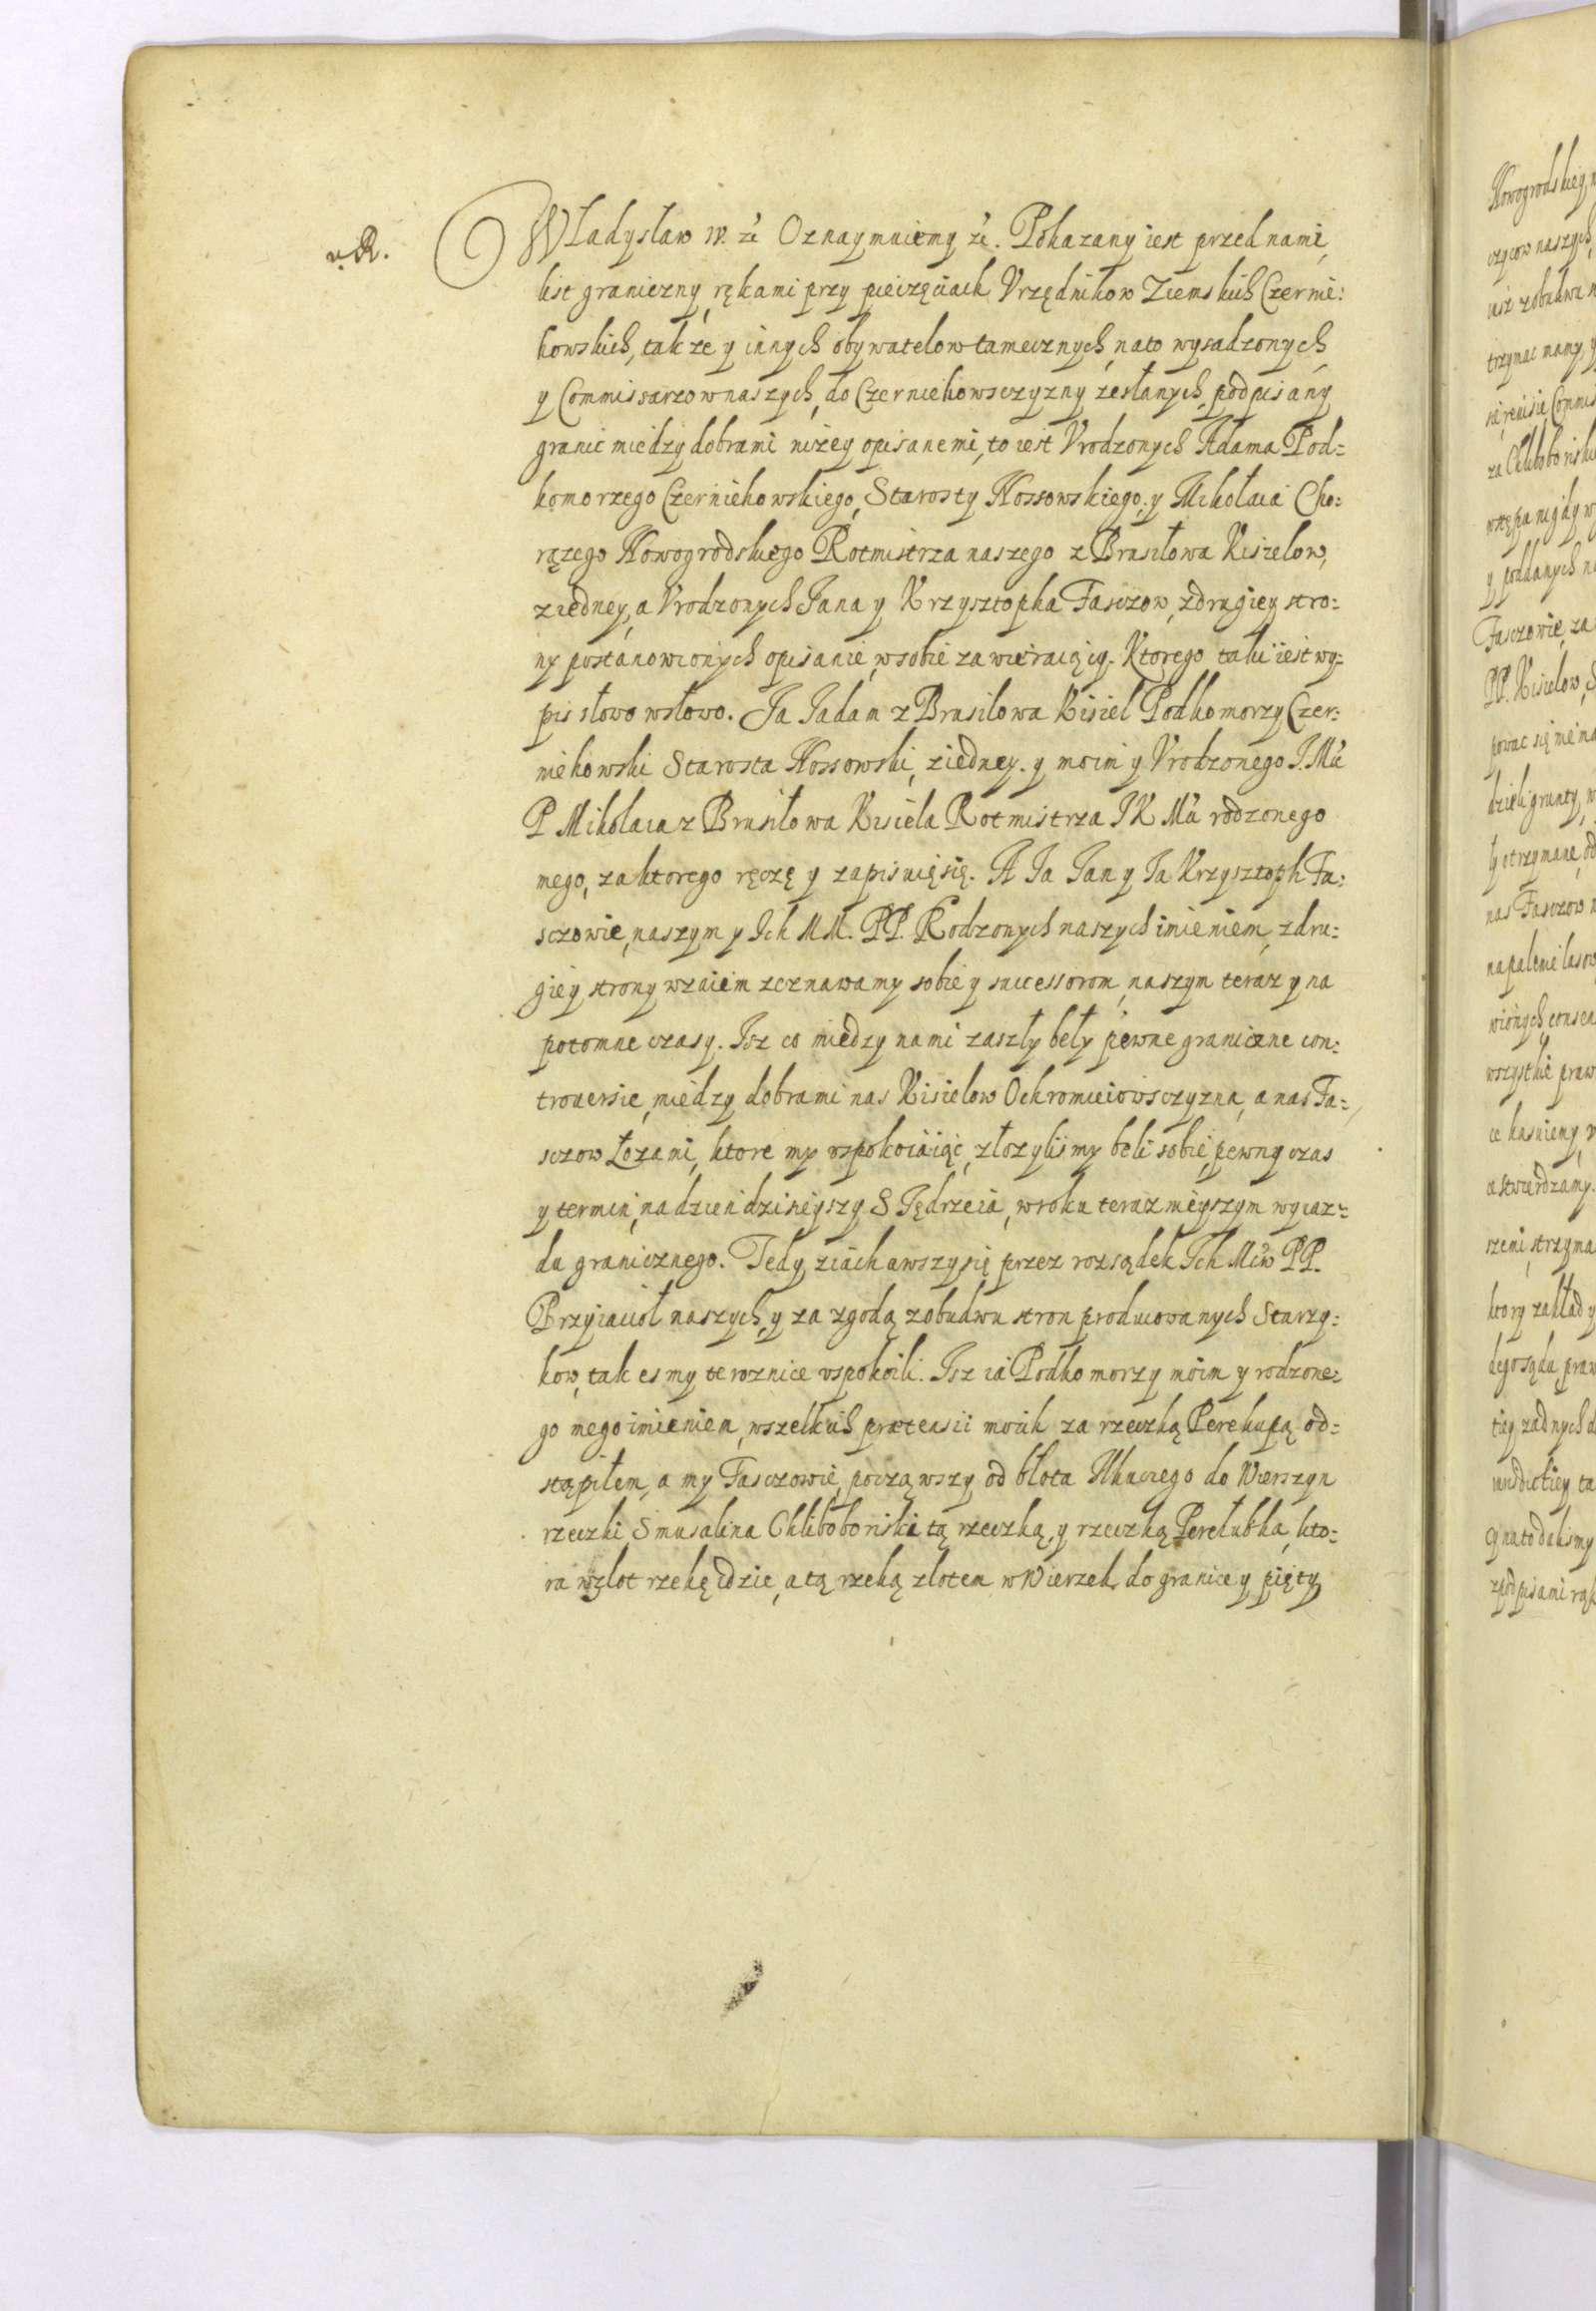 Władysław IV. &c Oznaymuiemy &c. Pokazany iest przed nami,
list graniczny, rękami przy pieczęciach Vrzędnikow Ziemskich Czernie:
howskich, także y innych obywatelow tamecznych, na to wysadzonych,
y Commissarzow naszych, do Czerniehowsczyzny zesłanych, podpisany
granic miedzy dobrami niżey opisanemi, to iest Vrodzonych Adama Pod:
komorzego Czerniehowskiego, Starosty Nossowskiego, y Mikołaia Cho:
rążego Nowogrodskiego Rotmistrza naszego z Brusiłowa Kisielow,
z iedney, a Vrodzonych Jana y Krzysztopha Fasczow, z drugiey stro:
ny postanowionych opisanie, w sobie zawieraiący. Ktorego taki iest wy:
pis słowo w słowo. Ja Jadam z Brusilowa Kisiel Podkomorzy Czer:
niehowski Starosta Nossowski, z iedney. y moim y Vrodzonego J. Mći
P Mikolaia z Brusiłowa Kisiela Rotmistrza J K Mći rodzonego
mego, za ktorego ręczę y zapisuię się. A Ja Jan y Ja Krzysztoph Fa:
sczowie, naszym y Ich MM. PP. Rodzonych naszych imieniem, z dru:
giey strony wzaiem zeznawamy sobie y successorom, naszym teraz y na
potomne czasy. Isz co miedzy nami zaszły beły pewne graniczne con:
trouersie, miedzy dobrami nas Kisielow Ochromieiowsczyzną, a nas Fa:
sczow Łozami, ktore my vspokoiaiąc, złozylismy beli sobie, pewny czas
y termin, na dzien dzisieyszy S Jędrzeia, w roku teraznieyszym wyiaz:
du granicznego. Tedy ziachawszy się przez rozsądek Ich Mćiow PP.
Przyiacioł naszych, y za zgodą z obudwu stron producowanych Starzy:
kow, tak esmy te roznice vspokoili. Isz ia Podkomorzy moim y rodzone:
go mego imieniem, wszelkich prætensii moich za rzeczką Perekupą od:
stąpiłem, a my Fasczowie, począwszy od błota Mhuczego do Wierszyn
rzeczki Smusalina Chliboboński tą rzeczką, y rzeczką Perełubka, kto:
ra wzlot rzekę idzie, a tą rzeką zlotem w Wierzch do granice y pięty